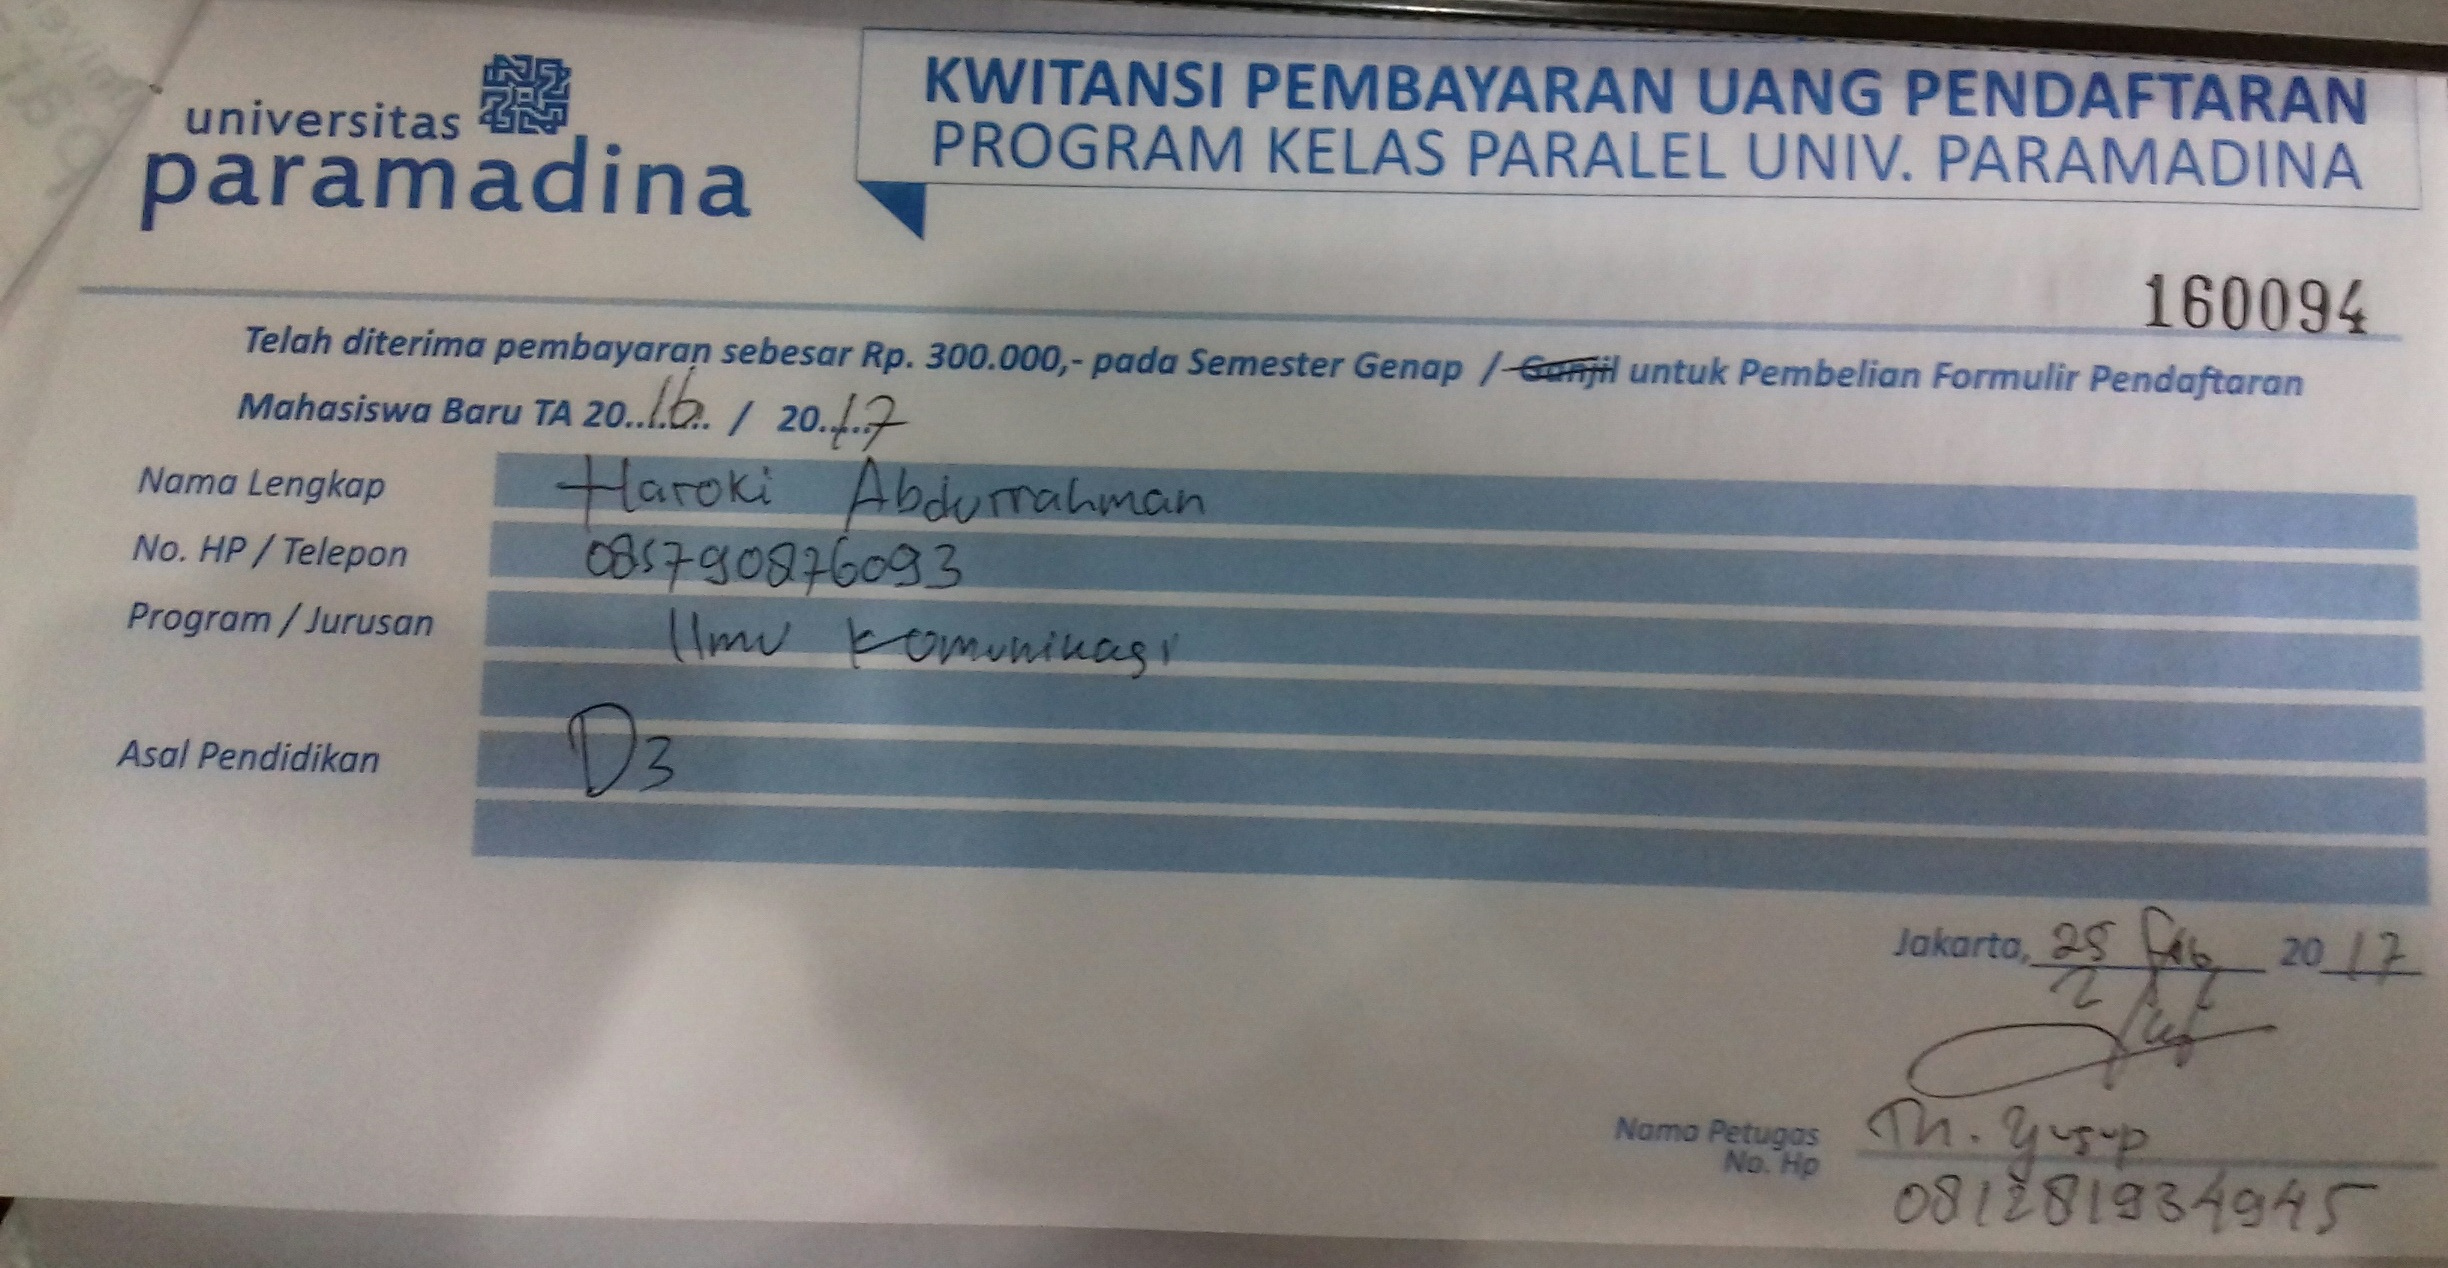 universitas
paramadina
KWITANSI PEMBAYARAN UANG PENDAFTARAN
PROGRAM KELAS PARALEL UNIV. PARAMADINA
160094
Telah diterima pembayaran sebesar Rp. 300.000,- pada Semester Genap / Ganjil untuk Pembelian Formulir Pendaftaran
Mahasiswa Baru TA 20..16.. / 20..17
Nama Lengkap Haroki Abdurrahman
No. HP / Telepon 085790876093
Program / Jurusan Ilmu Komunikasi
Asal Pendidikan D3
Jakarta, 25 Feb 2017
Nama Petugas Th. Yusup
No. Hp 081281934945